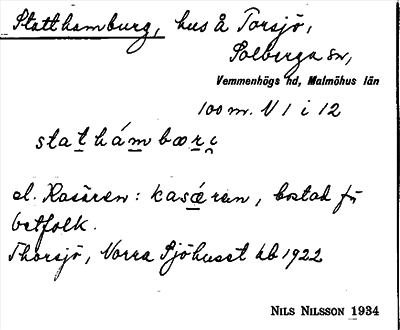 Statthamburg, hus å Torsjö,
Solberga sn,
Vemmenhögs hd, Malmöhus län
100 m. V 1 i 12
stathámbœrj
el. Kasären: kasǽren, bostad för
betfolk.
Thorsjö, Norra Sjöhuset kb 1922
NILS NILSSON 1934